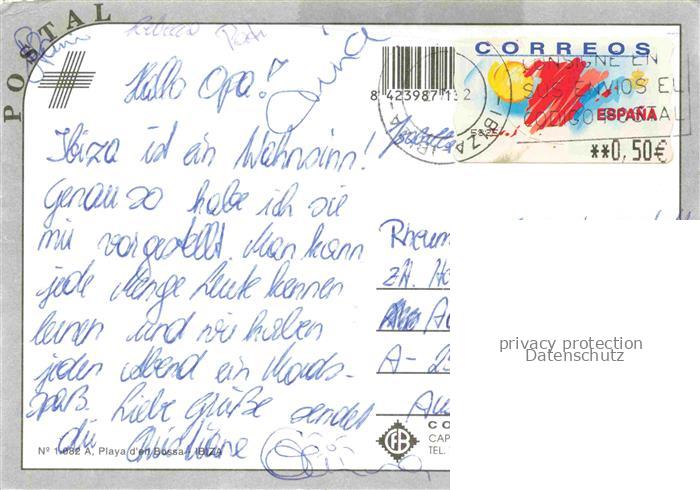 POSTAL
CORREOS
CONSIGNE EN
SUS ENVIOS EL
CODIGO POSTAL
ESPAÑA
**0,50€
8 423987 1 32
IBIZA
Hallo Opa!
Ibiza ist ein Wahnsinn!
Genau so habe ich sie
mir vorgestellt. Man kann
jede Menge Leute kennen
lernen und wir haben
jeden Abend ein Mords-
spaß. Liebe Grüße sendet
dir Christiane
Rheum
zH. Ho
Au
A-2
Aus
Nº 1.082 A, Playa d'en Bossa - IBIZA
CO
CAP
TEL.
privacy protection
Datenschutz